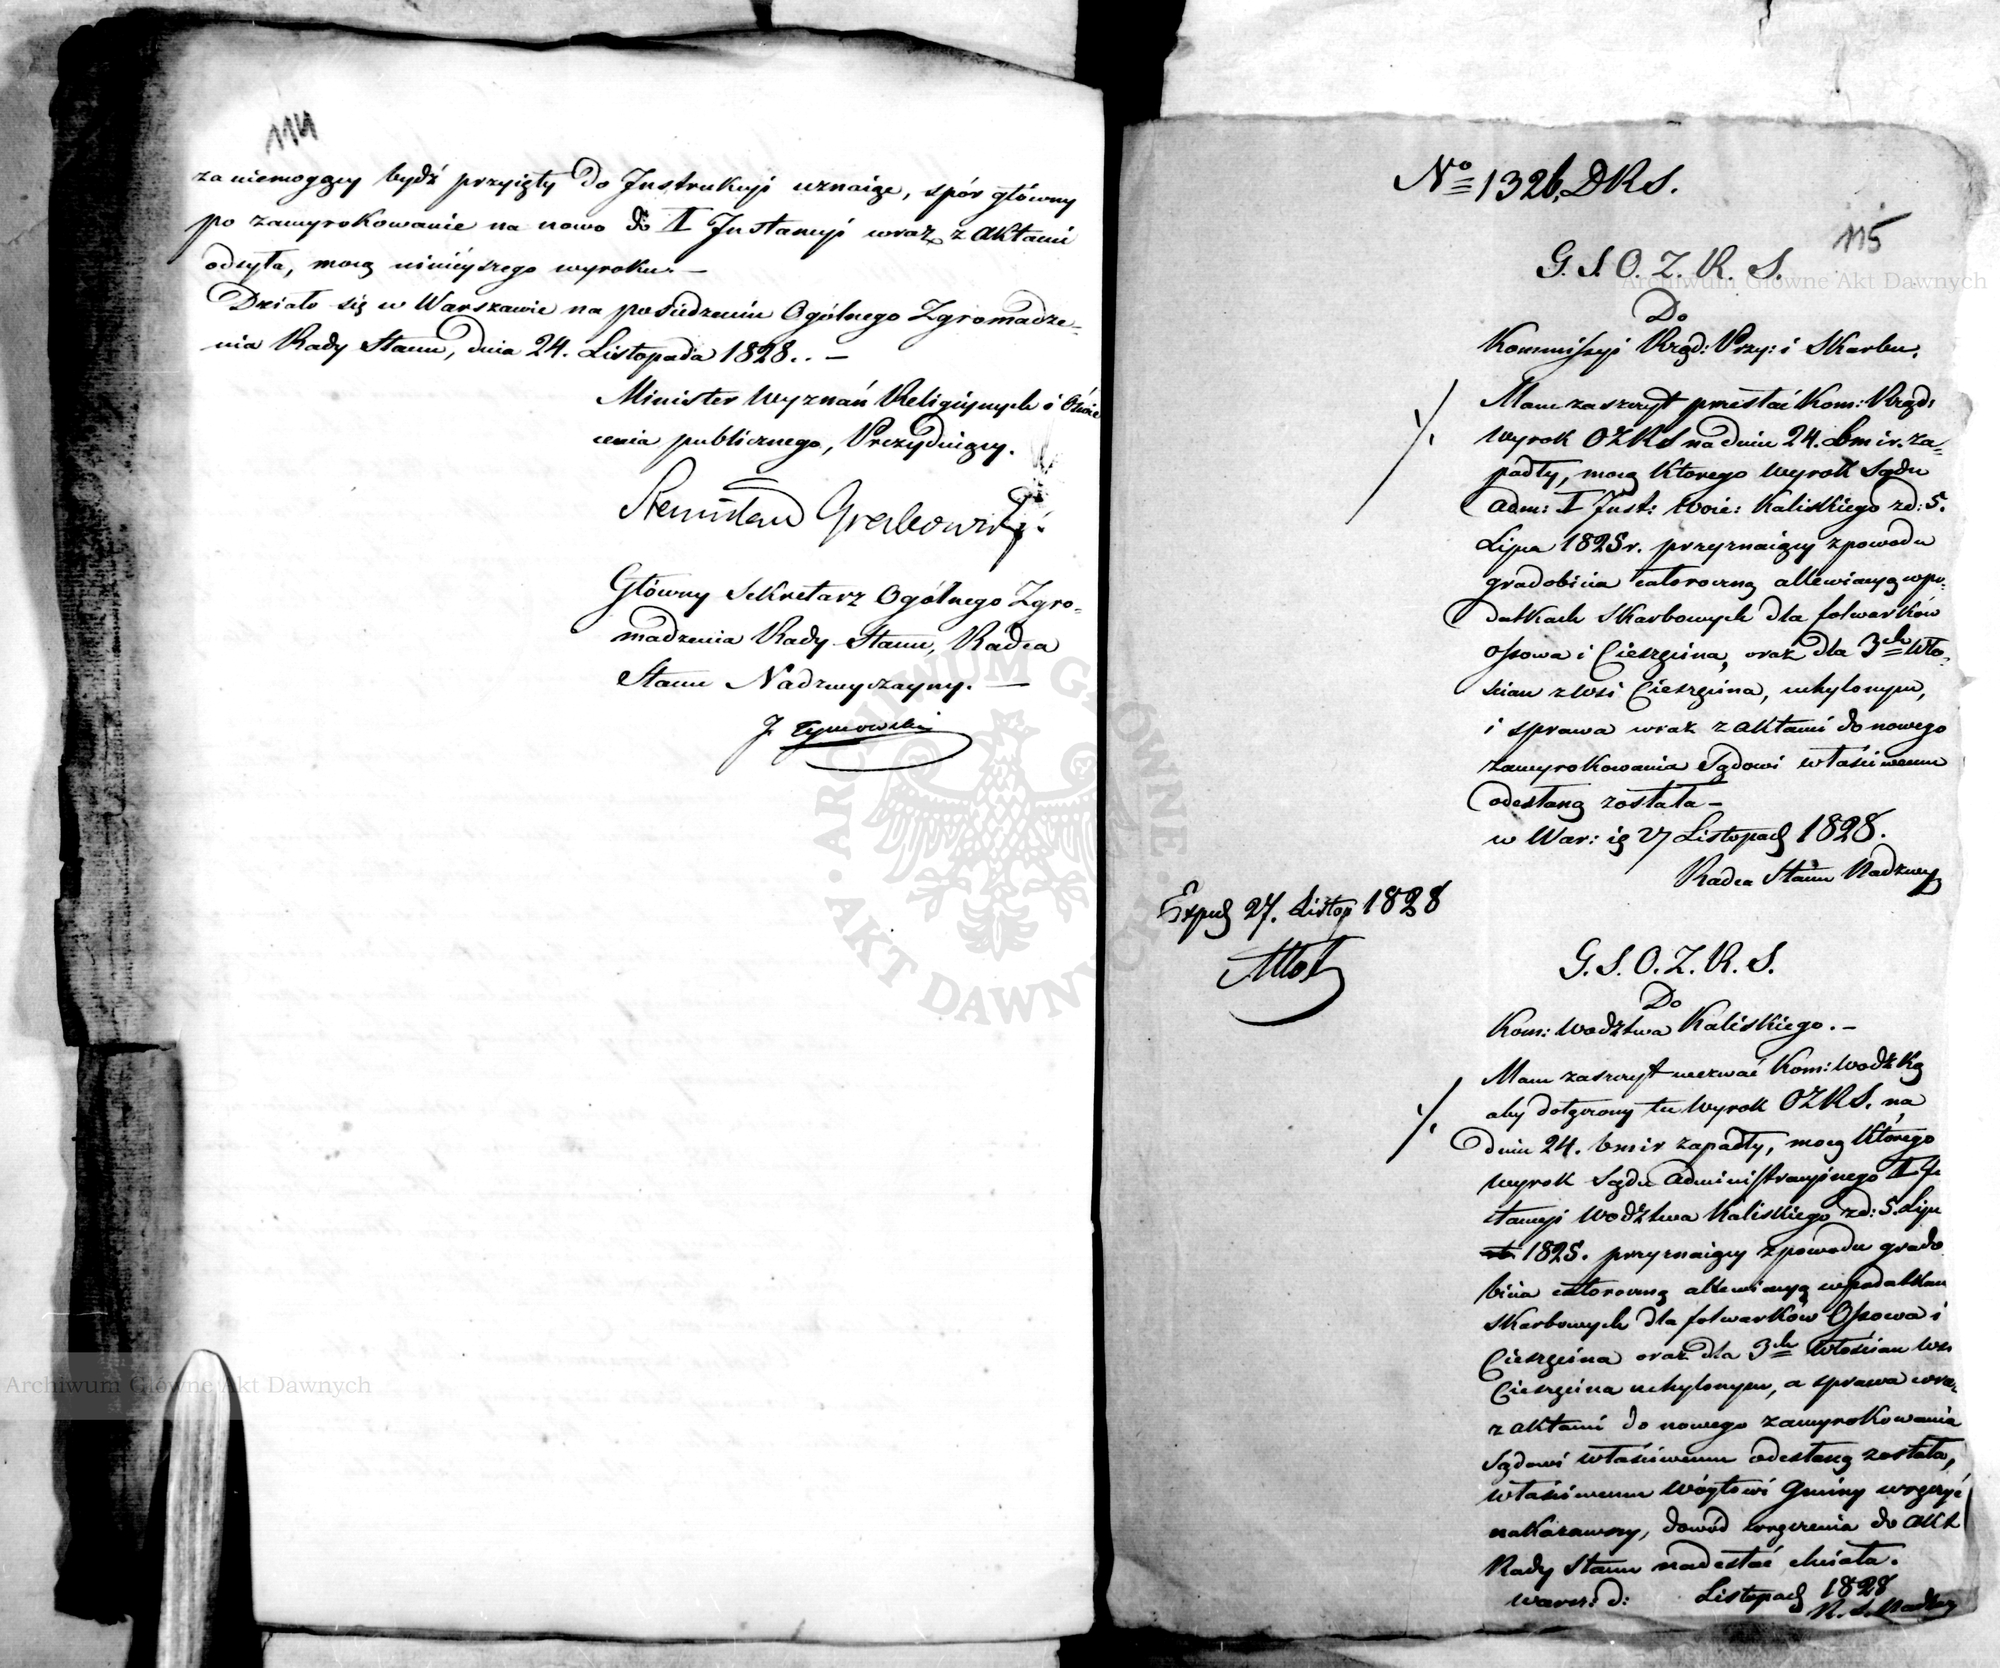 114
za niemogący bydź przyięty do Instrukcyi uznaiąc, spór główny
po zawyrokowanie na nowo do I Instancyi wraz z Aktami
odsyła, mocą ninieyszego wyroku. —
Działo się w Warszawie na posiedzeniu Ogólnego Zgromadze=
nia Rady Stanu, dnia 24. Listopada 1828. . —
Minister Wyznań Religiynych i Oświe
cenia publicznego, Prezyduiący.
Stanisław Grabowski
Główny Sekretarz Ogólnego Zgro=
madzenia Rady Stanu, Radca
Stanu Nadzwyczayny. —
J. Tymowski
No 1326 DRS.
115
G. S. O. Z. R. S.
Do
Kommissyi Rząd: Przy: i Skarbu.
Mam zaszczyt przesłać Kom: Rząd:
wyrok OZRS na dniu 24. bm ir. za=
padły, mocą którego wyrok Sądu
Adm: I Inst: Woie: Kaliskiego z d: 5.
Lipca 1825 r. przyznaiący z powodu
gradobicia całoroczną allewiacyą w po=
datkach Skarbowych dla folwarków
Ossowa i Cieszęcina, oraz dla 3ch Wło=
ścian z wsi Cieszęcina, uchylonym,
i sprawa wraz z aktami do nowego
zawyrokowania Sądowi właściwemu
odesłaną została —
w War: 27 Listopad 1828.
Radca Stanu Nadzwy
Exped 27. Listop 1828
G. S. O. Z. R. S.
Do
Kom: Wodztwa Kaliskiego. —
Mam zaszczyt wezwać Kom: Wodzką
aby dołączony tu Wyrok OZRS. na
dniu 24. bm ir zapadły, mocą którego
wyrok Sądu Administracyinego I In
stancyi Wodztwa Kaliskiego z d: 5. Lipc
1825. przyznaiący z powodu grado
bicia całoroczną allewiacyą w podatkach
Skarbowych dla folwarków Ossowa i
Cieszęcina oraz dla 3ch Włościan wsi
Cieszęcina uchylonym, a sprawa wraz
z aktami do nowego zawyrokowania
Sądowi właściwemu odesłaną została,
właściwemu Wóytowi Gminy wręczyć
nakazawszy, dowód wręczenia do Akt
Rady Stanu nadesłać chciała.
Warsz: d: Listopad 1828
R. S. Nadzwy
Archiwum Główne Akt Dawnych
Archiwum Główne Akt Dawnych
ARCHIWUM GŁÓWNE · AKT DAWNYCH ·